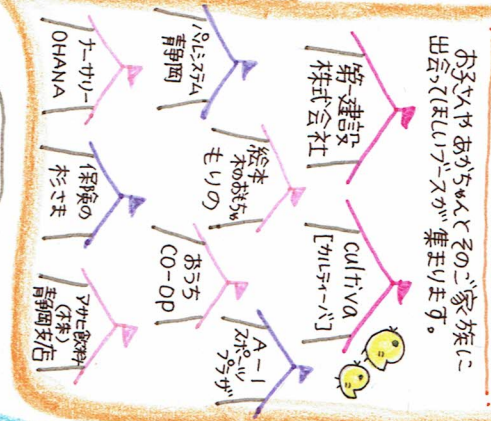 お子さんや あかちゃんとそのご家族に
出会ってほしいブースが集まります。
第一建設
株式会社
cultiva
[カルティーバ]
パルシステム
静岡
絵本
木のおもちゃ
もりの
おうち
CO-OP
A-1
スポーツ
プラザ
ナーサリー
OHANA
保険の
杉さま
アサヒ飲料
(株)
静岡支店